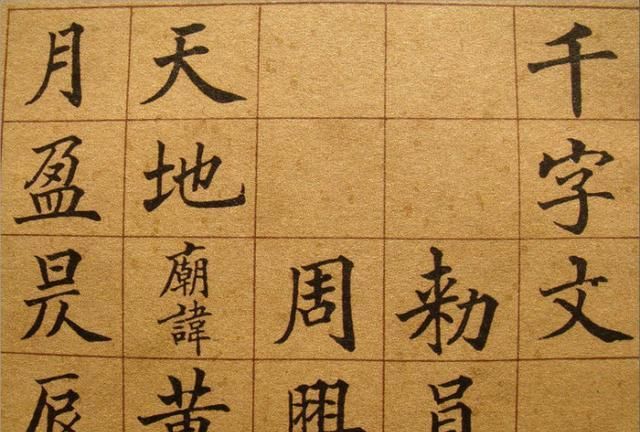 千字文
勑員
周興
天地廟諱黃
月盈昃辰